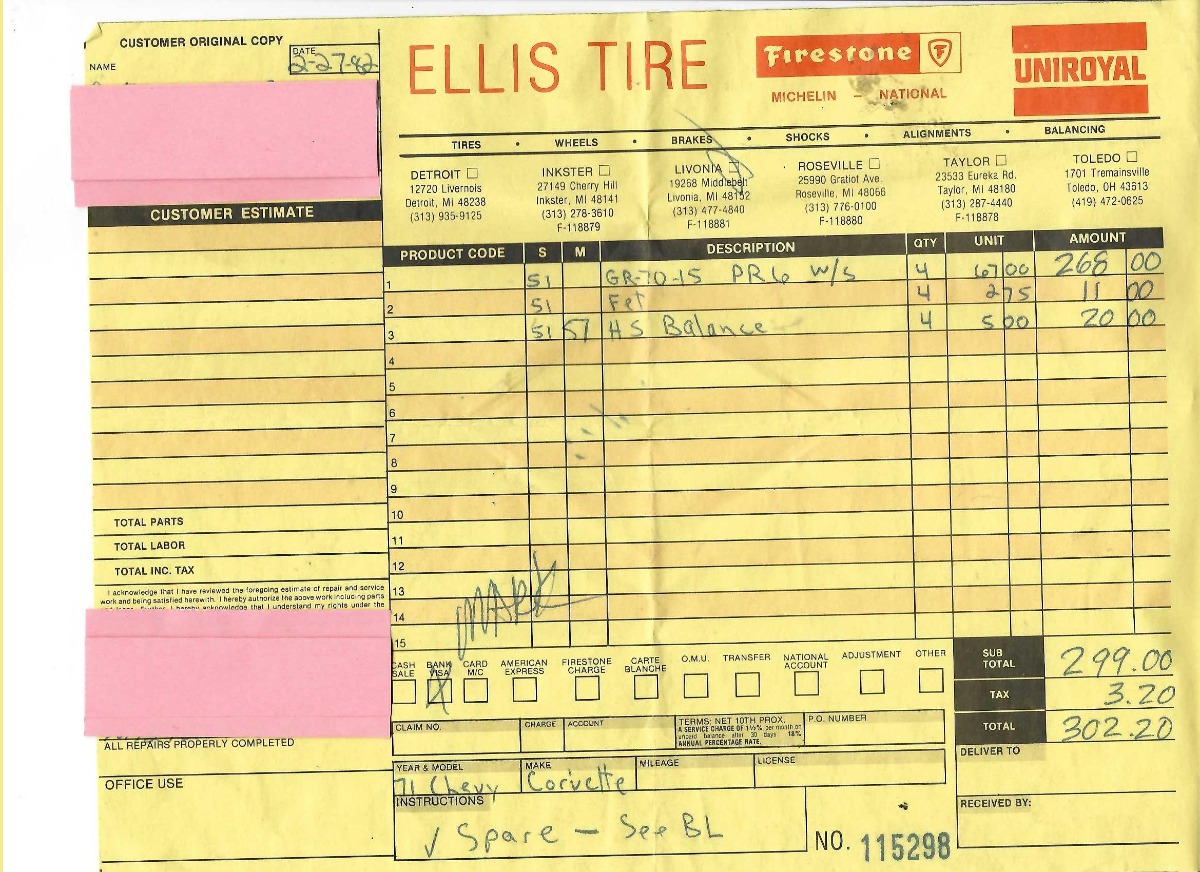 CUSTOMER ORIGINAL COPY
DATE
2-27-82
NAME
ELLIS TIRE
Firestone F
MICHELIN — NATIONAL
UNIROYAL
TIRES • WHEELS • BRAKES • SHOCKS • ALIGNMENTS • BALANCING
DETROIT
12720 Livernois
Detroit, MI 48238
(313) 935-9125
INKSTER
27149 Cherry Hill
Inkster, MI 48141
(313) 278-3610
F-118879
LIVONIA
19268 Middlebelt
Livonia, MI 48152
(313) 477-4840
F-118881
ROSEVILLE
25990 Gratiot Ave.
Roseville, MI 48066
(313) 776-0100
F-118880
TAYLOR
23533 Eureka Rd.
Taylor, MI 48180
(313) 287-4440
F-118878
TOLEDO
1701 Tremainsville
Toledo, OH 43613
(419) 472-0625
CUSTOMER ESTIMATE
TOTAL PARTS
TOTAL LABOR
TOTAL INC. TAX
I acknowledge that I have reviewed the foregoing estimate of repair and service
work and being satisfied herewith. I hereby authorize the above work including parts
ALL REPAIRS PROPERLY COMPLETED
OFFICE USE
PRODUCT CODE S M DESCRIPTION QTY UNIT AMOUNT
1 51 GR-70-15 PR6 W/S 4 67 00 268 00
2 51 Fet 4 2 75 11 00
3 51 51 HS Balance 4 5 00 20 00
4
5
6
7
8
9
10
11
12
13
14
15
MARK
CASH SALE
BANK VISA X
CARD M/C
AMERICAN EXPRESS
FIRESTONE CHARGE
CARTE BLANCHE
O.M.U.
TRANSFER
NATIONAL ACCOUNT
ADJUSTMENT
OTHER
SUB TOTAL 299.00
TAX 3.20
TOTAL 302.20
CLAIM NO.
CHARGE
ACCOUNT
TERMS: NET 10TH PROX.
A SERVICE CHARGE OF 1½% per month on
unpaid balance after 30 days 18%
ANNUAL PERCENTAGE RATE.
P.O. NUMBER
YEAR & MODEL
71 Chevy
MAKE
Corvette
MILEAGE
LICENSE
INSTRUCTIONS
✓ Spare — See BL
NO. 115298
DELIVER TO
RECEIVED BY: